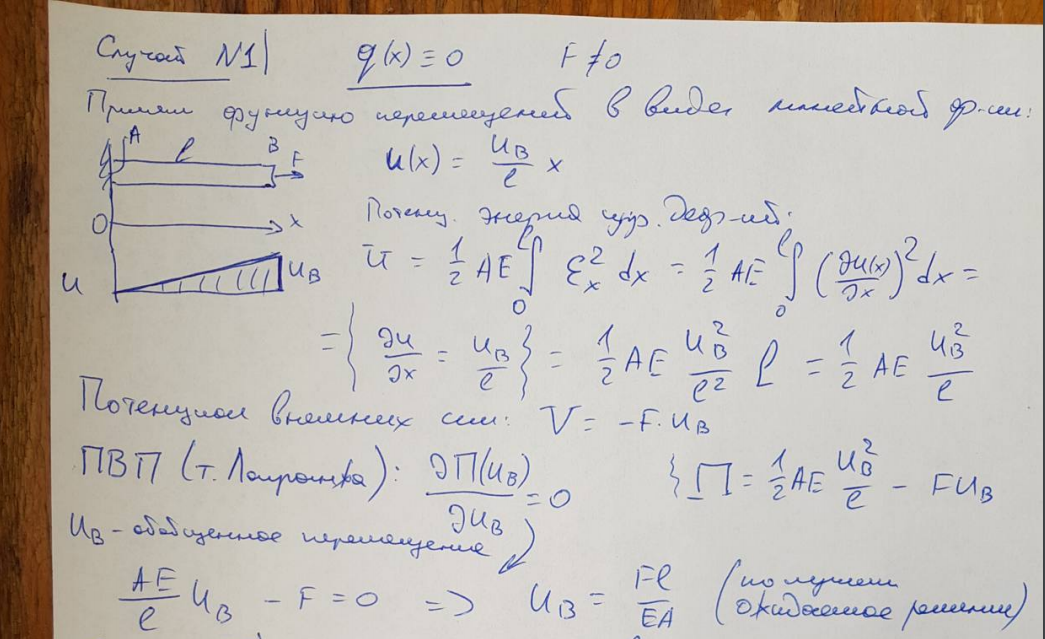 Случай №1 q(x) ≡ 0 F ≠ 0
Примем функцию перемещений в виде линейной ф-ии:
A l B F
u(x) = u_B/l x
O x
Потенц. энергия упр. деф-ий:
u u_B
U = 1/2 AE ∫₀ˡ ε_x² dx = 1/2 AE ∫₀ˡ (∂u(x)/∂x)² dx =
= { ∂u/∂x = u_B/l } = 1/2 AE u_B²/l² l = 1/2 AE u_B²/l
Потенциал внешних сил: V = -F · u_B
ПВП (т. Лагранжа): ∂П(u_B)/∂u_B = 0 { П = 1/2 AE u_B²/l - Fu_B
u_B - обобщенное перемещение
AE/l u_B - F = 0 => u_B = Fl/EA (получили
ожидаемое решение)